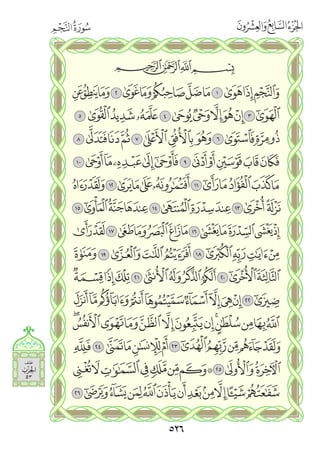 الجُزْءُ السَّابِعُ وَالعِشْرُونَ
سُورَةُ النَّجْمِ
بِسْمِ ٱللَّهِ ٱلرَّحْمَٰنِ ٱلرَّحِيمِ
وَٱلنَّجْمِ إِذَا هَوَىٰ ١ مَا ضَلَّ صَاحِبُكُمْ وَمَا غَوَىٰ ٢ وَمَا يَنطِقُ عَنِ
ٱلْهَوَىٰٓ ٣ إِنْ هُوَ إِلَّا وَحْىٌ يُوحَىٰ ٤ عَلَّمَهُۥ شَدِيدُ ٱلْقُوَىٰ ٥
ذُو مِرَّةٍ فَٱسْتَوَىٰ ٦ وَهُوَ بِٱلْأُفُقِ ٱلْأَعْلَىٰ ٧ ثُمَّ دَنَا فَتَدَلَّىٰ ٨
فَكَانَ قَابَ قَوْسَيْنِ أَوْ أَدْنَىٰ ٩ فَأَوْحَىٰٓ إِلَىٰ عَبْدِهِۦ مَآ أَوْحَىٰ ١٠
مَا كَذَبَ ٱلْفُؤَادُ مَا رَأَىٰٓ ١١ أَفَتُمَٰرُونَهُۥ عَلَىٰ مَا يَرَىٰ ١٢ وَلَقَدْ رَءَاهُ
نَزْلَةً أُخْرَىٰ ١٣ عِندَ سِدْرَةِ ٱلْمُنتَهَىٰ ١٤ عِندَهَا جَنَّةُ ٱلْمَأْوَىٰٓ ١٥
إِذْ يَغْشَى ٱلسِّدْرَةَ مَا يَغْشَىٰ ١٦ مَا زَاغَ ٱلْبَصَرُ وَمَا طَغَىٰ ١٧ لَقَدْ رَأَىٰ
مِنْ ءَايَٰتِ رَبِّهِ ٱلْكُبْرَىٰٓ ١٨ أَفَرَءَيْتُمُ ٱللَّٰتَ وَٱلْعُزَّىٰ ١٩ وَمَنَوٰةَ
ٱلثَّالِثَةَ ٱلْأُخْرَىٰٓ ٢٠ أَلَكُمُ ٱلذَّكَرُ وَلَهُ ٱلْأُنثَىٰ ٢١ تِلْكَ إِذًا قِسْمَةٌ
ضِيزَىٰٓ ٢٢ إِنْ هِىَ إِلَّآ أَسْمَآءٌ سَمَّيْتُمُوهَآ أَنتُمْ وَءَابَآؤُكُم مَّآ أَنزَلَ
ٱللَّهُ بِهَا مِن سُلْطَٰنٍ إِن يَتَّبِعُونَ إِلَّا ٱلظَّنَّ وَمَا تَهْوَى ٱلْأَنفُسُ
وَلَقَدْ جَآءَهُم مِّن رَّبِّهِمُ ٱلْهُدَىٰٓ ٢٣ أَمْ لِلْإِنسَٰنِ مَا تَمَنَّىٰ ٢٤ فَلِلَّهِ
ٱلْءَاخِرَةُ وَٱلْأُولَىٰ ٢٥ ۞ وَكَم مِّن مَّلَكٍ فِى ٱلسَّمَٰوَٰتِ لَا تُغْنِى
شَفَٰعَتُهُمْ شَيْـًٔا إِلَّا مِنۢ بَعْدِ أَن يَأْذَنَ ٱللَّهُ لِمَن يَشَآءُ وَيَرْضَىٰٓ ٢٦
الحزب
٥٣
٥٢٦